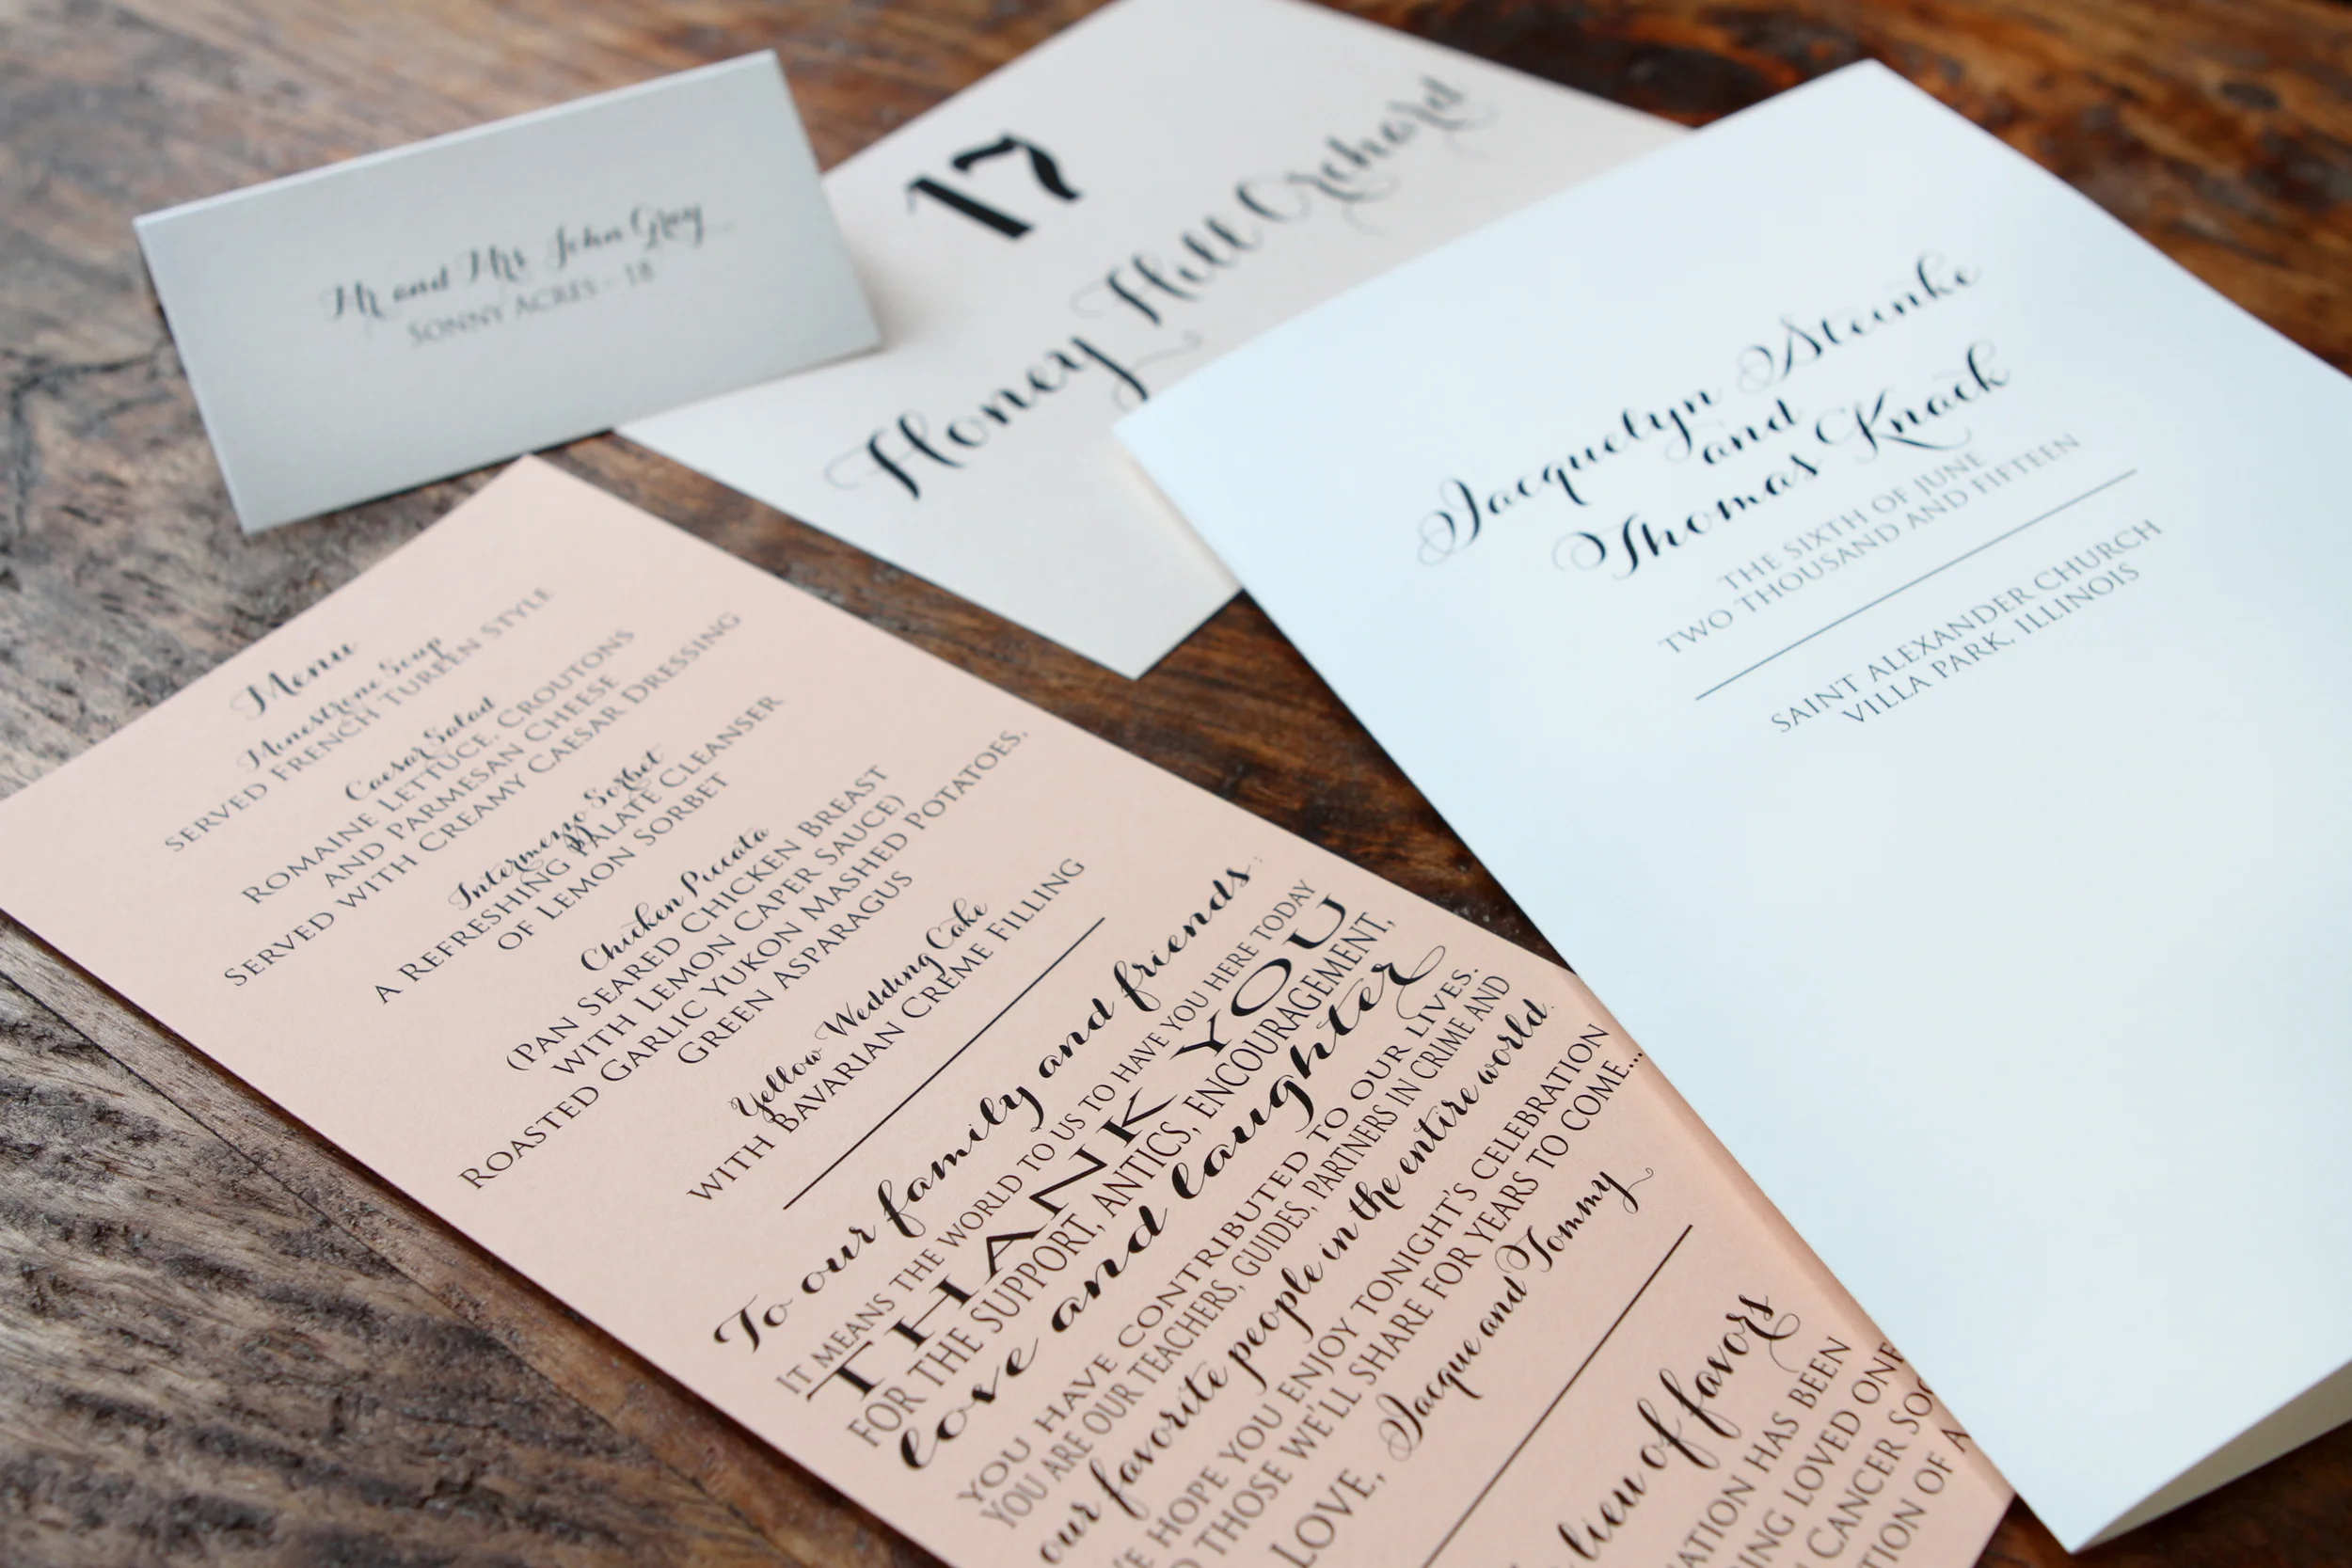 Mr and Mrs John Gray
SONNY ACRES - 18
17
Honey Hill Orchard
Jacquelyn Steinke
and
Thomas Knack
THE SIXTH OF JUNE
TWO THOUSAND AND FIFTEEN
SAINT ALEXANDER CHURCH
VILLA PARK, ILLINOIS
Menu
Minestrone Soup
SERVED FRENCH TUREEN STYLE
Caesar Salad
ROMAINE LETTUCE, CROUTONS
AND PARMESAN CHEESE
SERVED WITH CREAMY CAESAR DRESSING
Intermezzo Sorbet
A REFRESHING PALATE CLEANSER
OF LEMON SORBET
Chicken Piccata
(PAN SEARED CHICKEN BREAST
WITH LEMON CAPER SAUCE)
ROASTED GARLIC YUKON MASHED POTATOES,
GREEN ASPARAGUS
Yellow Wedding Cake
WITH BAVARIAN CRÈME FILLING
To our family and friends:
IT MEANS THE WORLD TO US TO HAVE YOU HERE TODAY
THANK YOU
FOR THE SUPPORT, ANTICS, ENCOURAGEMENT,
love and laughter
YOU HAVE CONTRIBUTED TO OUR LIVES.
YOU ARE OUR TEACHERS, GUIDES, PARTNERS IN CRIME AND
our favorite people in the entire world.
HOPE YOU ENJOY TONIGHT'S CELEBRATION
THOSE WE'LL SHARE FOR YEARS TO COME...
LOVE, Jacque and Tommy
lieu of favors
HAS BEEN
LOVED
CANCER
OF A